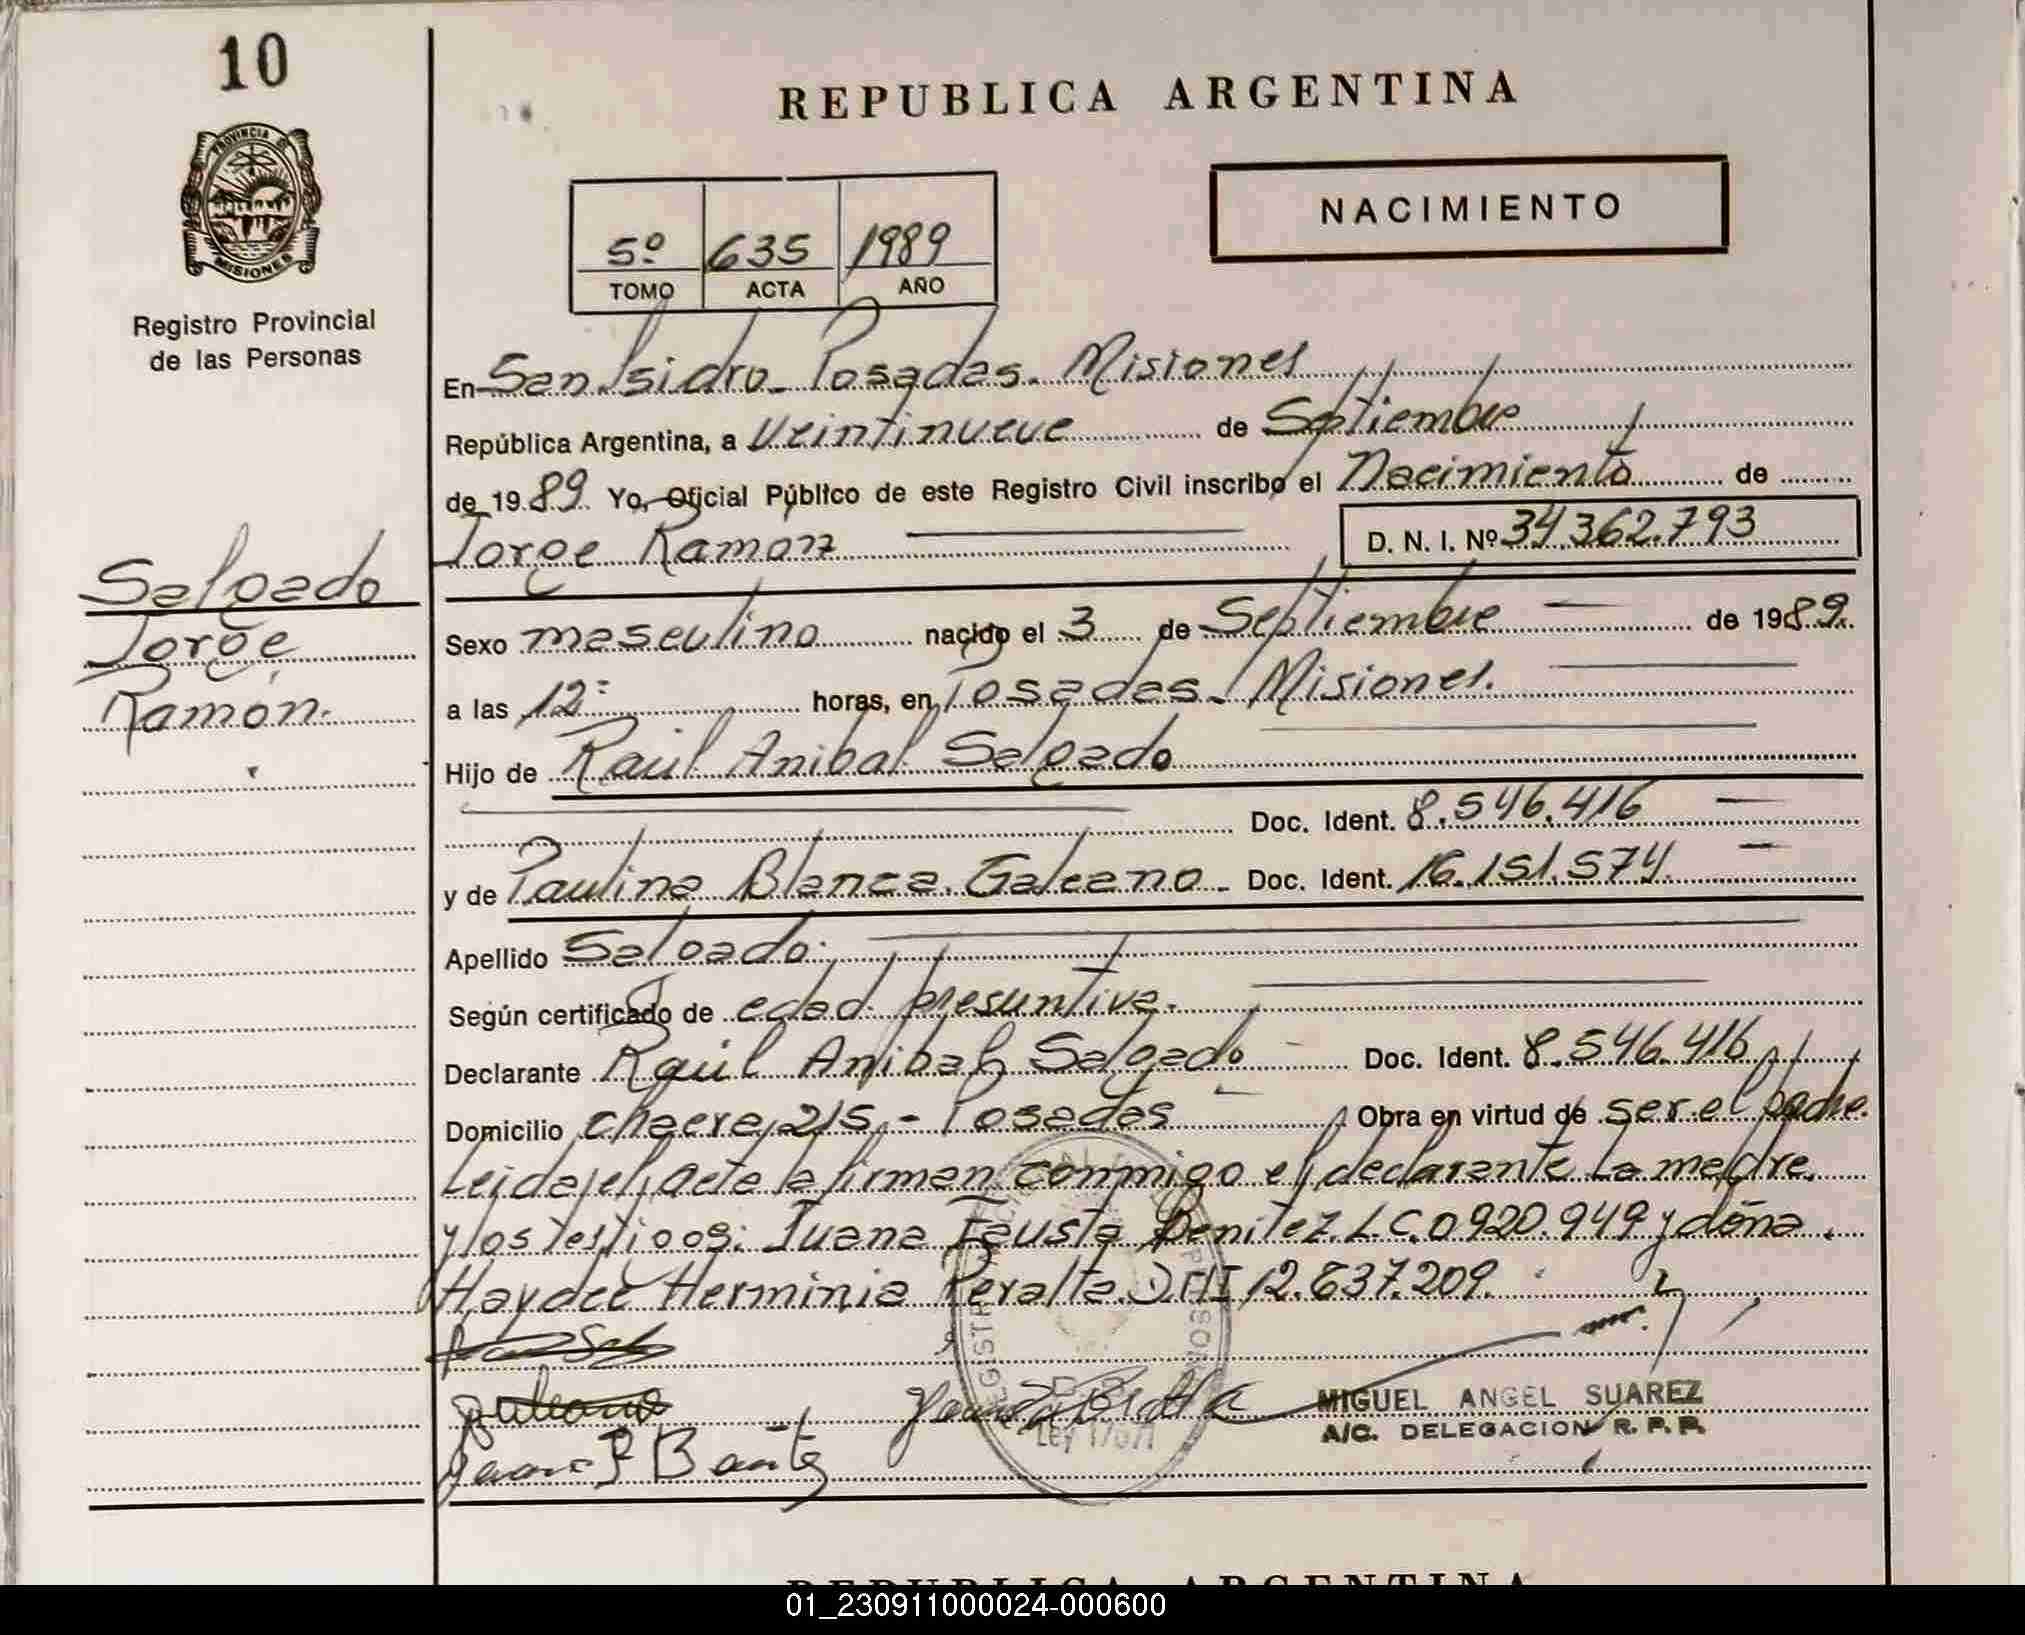 10
PROVINCIA
MISIONES
Registro Provincial
de las Personas
Salgado
Jorge
Ramón.
REPUBLICA ARGENTINA
NACIMIENTO
5º 635 1989
TOMO ACTA AÑO
En San Isidro. Posadas. Misiones
República Argentina, a Veintinueve de Septiembre
de 1989. Yo, Oficial Público de este Registro Civil inscribo el Nacimiento de
Jorge Ramon D. N. I. Nº 34.362.793
Sexo masculino nacido el 3 de Septiembre de 1989.
a las 12: horas, en Posadas. Misiones.
Hijo de Raúl Anibal Salgado
Doc. Ident. 8.546.416
y de Paulina Blanca Galeano. Doc. Ident. 16.151.574.
Apellido Salgado.
Según certificado de edad presuntiva.
Declarante Raúl Anibal Salgado Doc. Ident. 8.546.416
Domicilio chacra 215. - Posadas Obra en virtud de ser el padre.
Leida el acta la firman conmigo el declarante La madre.
y los testigos: Juana Fausta Benitez. L.C. 0920.949 y doña.
Haydeé Herminia Peralta. DNI 12.637.209.
Juana F Benitez
MIGUEL ANGEL SUAREZ
A/C. DELEGACION R. P. P.
REPUBLICA ARGENTINA
01_230911000024-000600